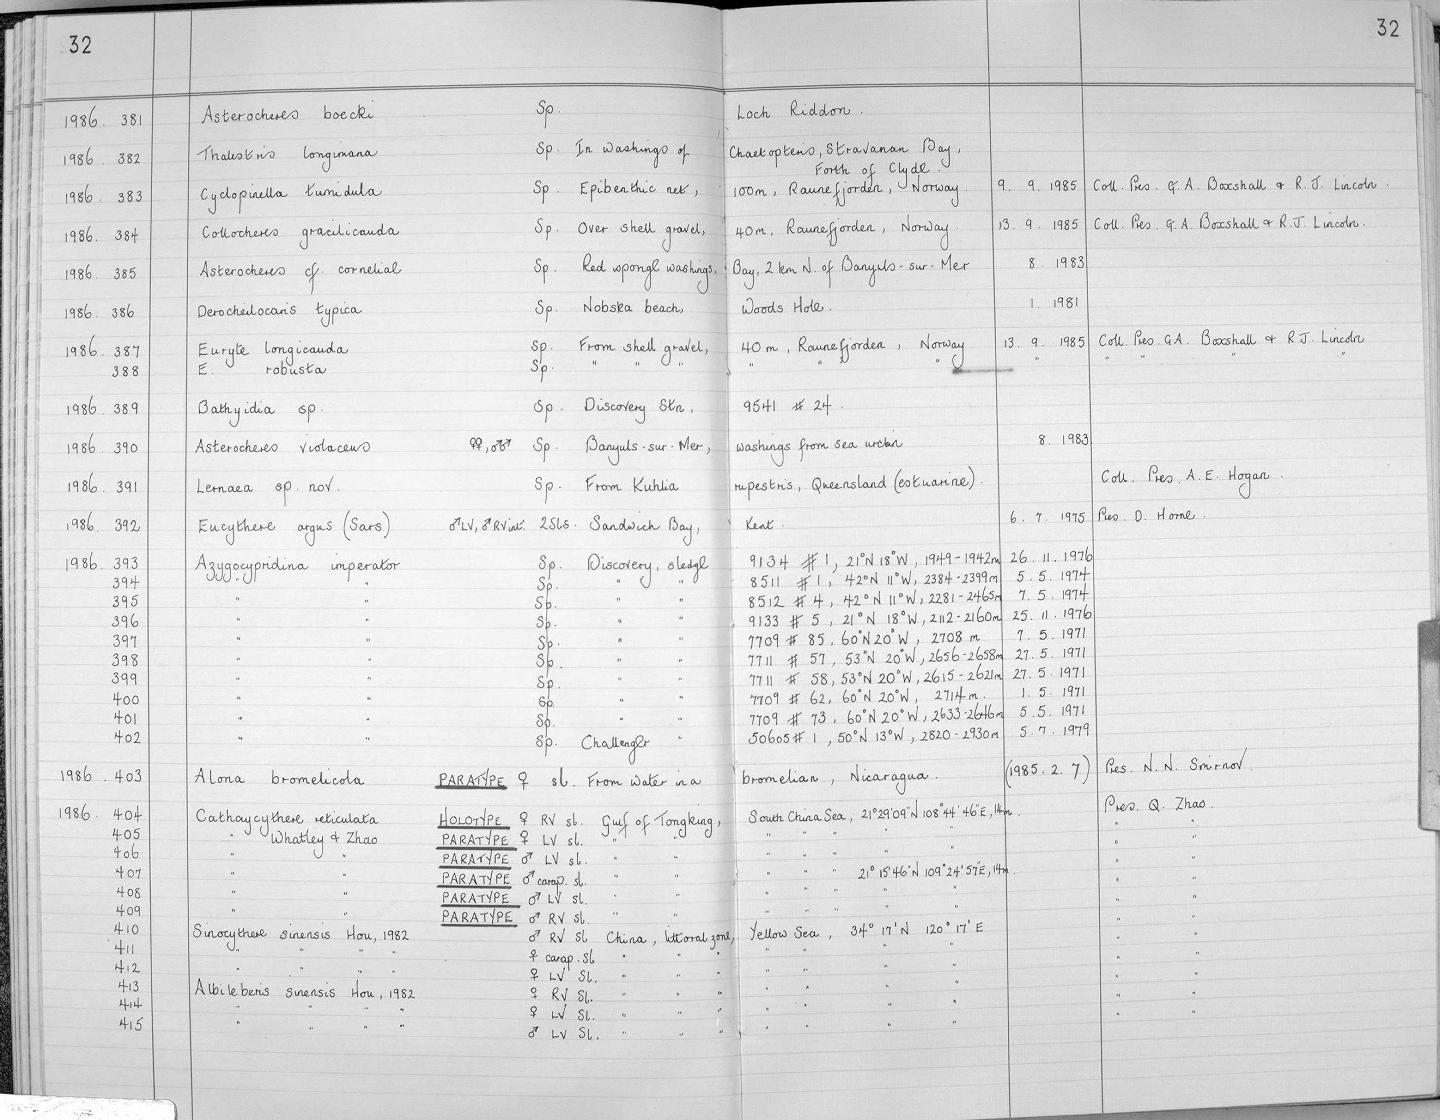 32 32
1986. 381 Asterocheres boecki Sp. Loch Riddon.
1986. 382 Thalestris longimana Sp. In washings of Chaetopteris, Stravanan Bay,
Forth of Clyde.
1986. 383 Cyclopinella tumidula Sp. Epibenthic net, 100m, Raunefjorden, Norway. 9. 9. 1985 Coll. Pres. G.A. Boxshall & R.J. Lincoln.
1986. 384 Collocheres gracilicauda Sp. Over shell gravel, 40m, Raunefjorden, Norway. 13. 9. 1985 Coll. Pres. G.A. Boxshall & R.J. Lincoln.
1986. 385 Asterocheres cf. cornelial Sp. Red sponge washings, Bay, 2 km N. of Banyuls-sur-Mer 8. 1983
1986. 386 Derocheilocaris typica Sp. Nobska beach, Woods Hole. 1. 1981
1986. 387 Euryte longicauda Sp. From shell gravel, 40m, Raunefjorden, Norway 13. 9. 1985 Coll. Pres. G.A. Boxshall & R.J. Lincoln
388 E. robusta Sp. " " " " " " " " " " "
1986. 389 Bathyidia sp. Sp. Discovery Stn, 9541 # 24.
1986. 390 Asterocheres violaceus ♀♀, ♂♂ Sp. Banyuls-sur-Mer, washings from sea urchin 8. 1983
1986. 391 Lernaea sp. nov. Sp. From Kuhlia rupestris, Queensland (estuarine). Coll. Pres. A.E. Hogan.
1986. 392 Eucythere argus (Sars) ♂LV, ♂RVint. 2Sls. Sandwich Bay, Kent. 6. 7. 1975 Pres. D. Horne.
1986. 393 Azygocypridina imperator Sp. Discovery, sledge 9134 # 1, 21°N 18°W, 1949-1942m 26. 11. 1976
394 " " Sp. " " 8511 # 1, 42°N 11°W, 2384-2399m 5. 5. 1974
395 " " Sp. " " 8512 # 4, 42°N 11°W, 2281-2465m 7. 5. 1974
396 " " Sp. " " 9133 # 5, 21°N 18°W, 2112-2160m 25. 11. 1976
397 " " Sp. " " 7709 # 85, 60°N 20°W, 2708 m 7. 5. 1971
398 " " Sp. " " 7711 # 57, 53°N 20°W, 2656-2658m 27. 5. 1971
399 " " Sp. " " 7711 # 58, 53°N 20°W, 2615-2621m 27. 5. 1971
400 " " Sp. " " 7709 # 62, 60°N 20°W, 2714m. 1. 5. 1971
401 " " Sp. " " 7709 # 73, 60°N 20°W, 2633-2646m 5. 5. 1971
402 " " Sp. Challenger " 50605 # 1, 50°N 13°W, 2820-2930m 5. 7. 1979
1986. 403 Alona bromelicola PARATYPE ♀ sl. From water in a bromelian, Nicaragua. (1985. 2. 7) Pres. N.N. Smirnov.
1986. 404 Cathaycythere reticulata HOLOTYPE ♀ RV sl. Gulf of Tongking, South China Sea, 21°29'09"N 108°44'46"E, 14m. Pres. Q. Zhao.
405 " Whatley & Zhao PARATYPE ♀ LV sl. " " " " " " " " "
406 " " PARATYPE ♂ LV sl. " " " " " " " " "
407 " " PARATYPE ♂ carap. sl. " " " " " 21°15'46"N 109°24'57"E, 14m. " "
408 " " PARATYPE ♂ LV sl. " " " " " " " " "
409 " " PARATYPE ♂ RV sl. " " " " " " " " "
410 Sinocythere sinensis Hou, 1982 ♂ RV sl. China, littoral zone, Yellow Sea, 34°17'N 120°17'E " "
411 " " " " ♀ carap. sl. " " " " " " " " "
412 " " " " ♀ LV sl. " " " " " " " " "
413 Albileberis sinensis Hou, 1982 ♀ RV sl. " " " " " " " " "
414 " " " " ♀ LV sl. " " " " " " " " "
415 " " " " ♂ LV sl. " " " " " " "